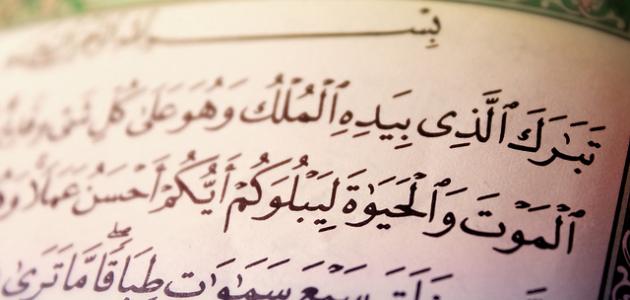 بِسْــــــمِ
تَبَٰرَكَ ٱلَّذِى بِيَدِهِ ٱلْمُلْكُ وَهُوَ عَلَىٰ كُلِّ شَىْءٍ
ٱلْمَوْتَ وَٱلْحَيَوٰةَ لِيَبْلُوَكُمْ أَيُّكُمْ أَحْسَنُ عَمَلًا
سَبْعَ سَمَٰوَٰتٍ طِبَاقًا مَّا تَرَىٰ